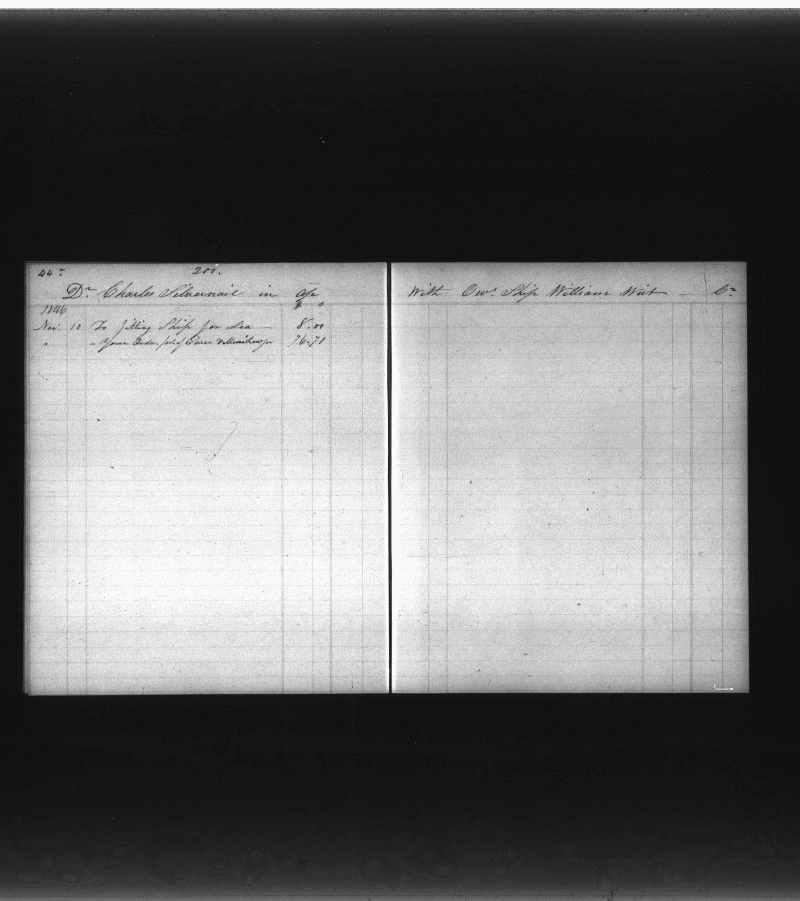 44
200.
Dr Charles Silvernail in a/c
With Owr Ship William Wirt — Cr
1846
Nov. 10 To fitting Ship for Sea — 8.00
" " Your Order, fav of 76.71